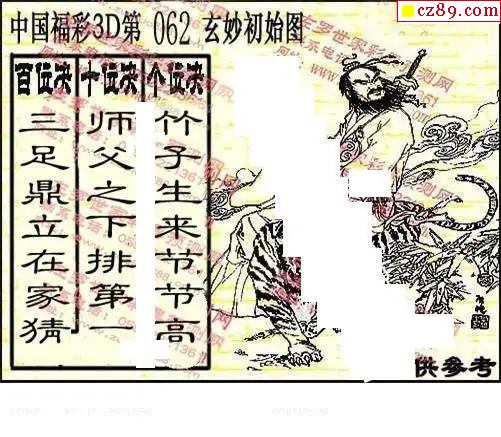 cz89.com
中国福彩3D第 062 玄妙初始图
百位决 十位决 个位决
三足鼎立在家猜
师父之下排第一
竹子生来节节高
供参考